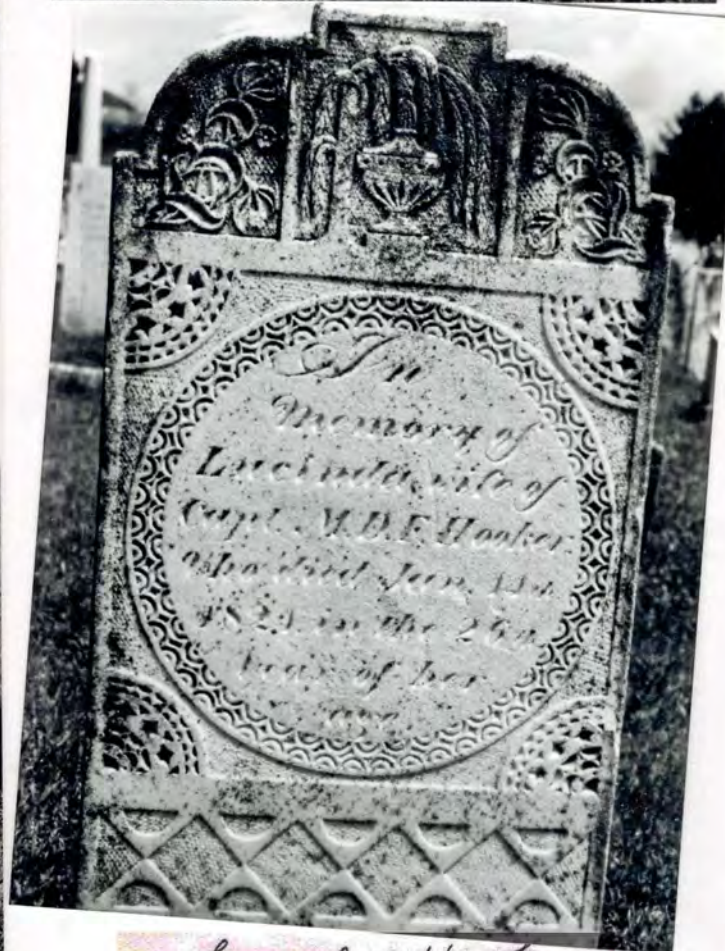 In
Memory of
Lucinda, wife of
Capt. M.D.F. Hooker
who died Jan.
in the
year of her
age